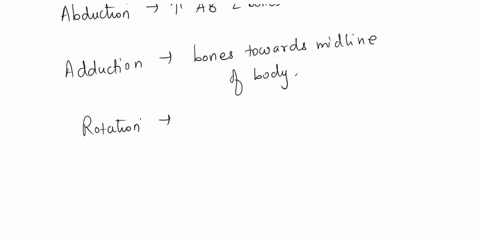 Abduction → ↑ AB 2 bones
Adduction → bones towards midline
of body.
Rotation →